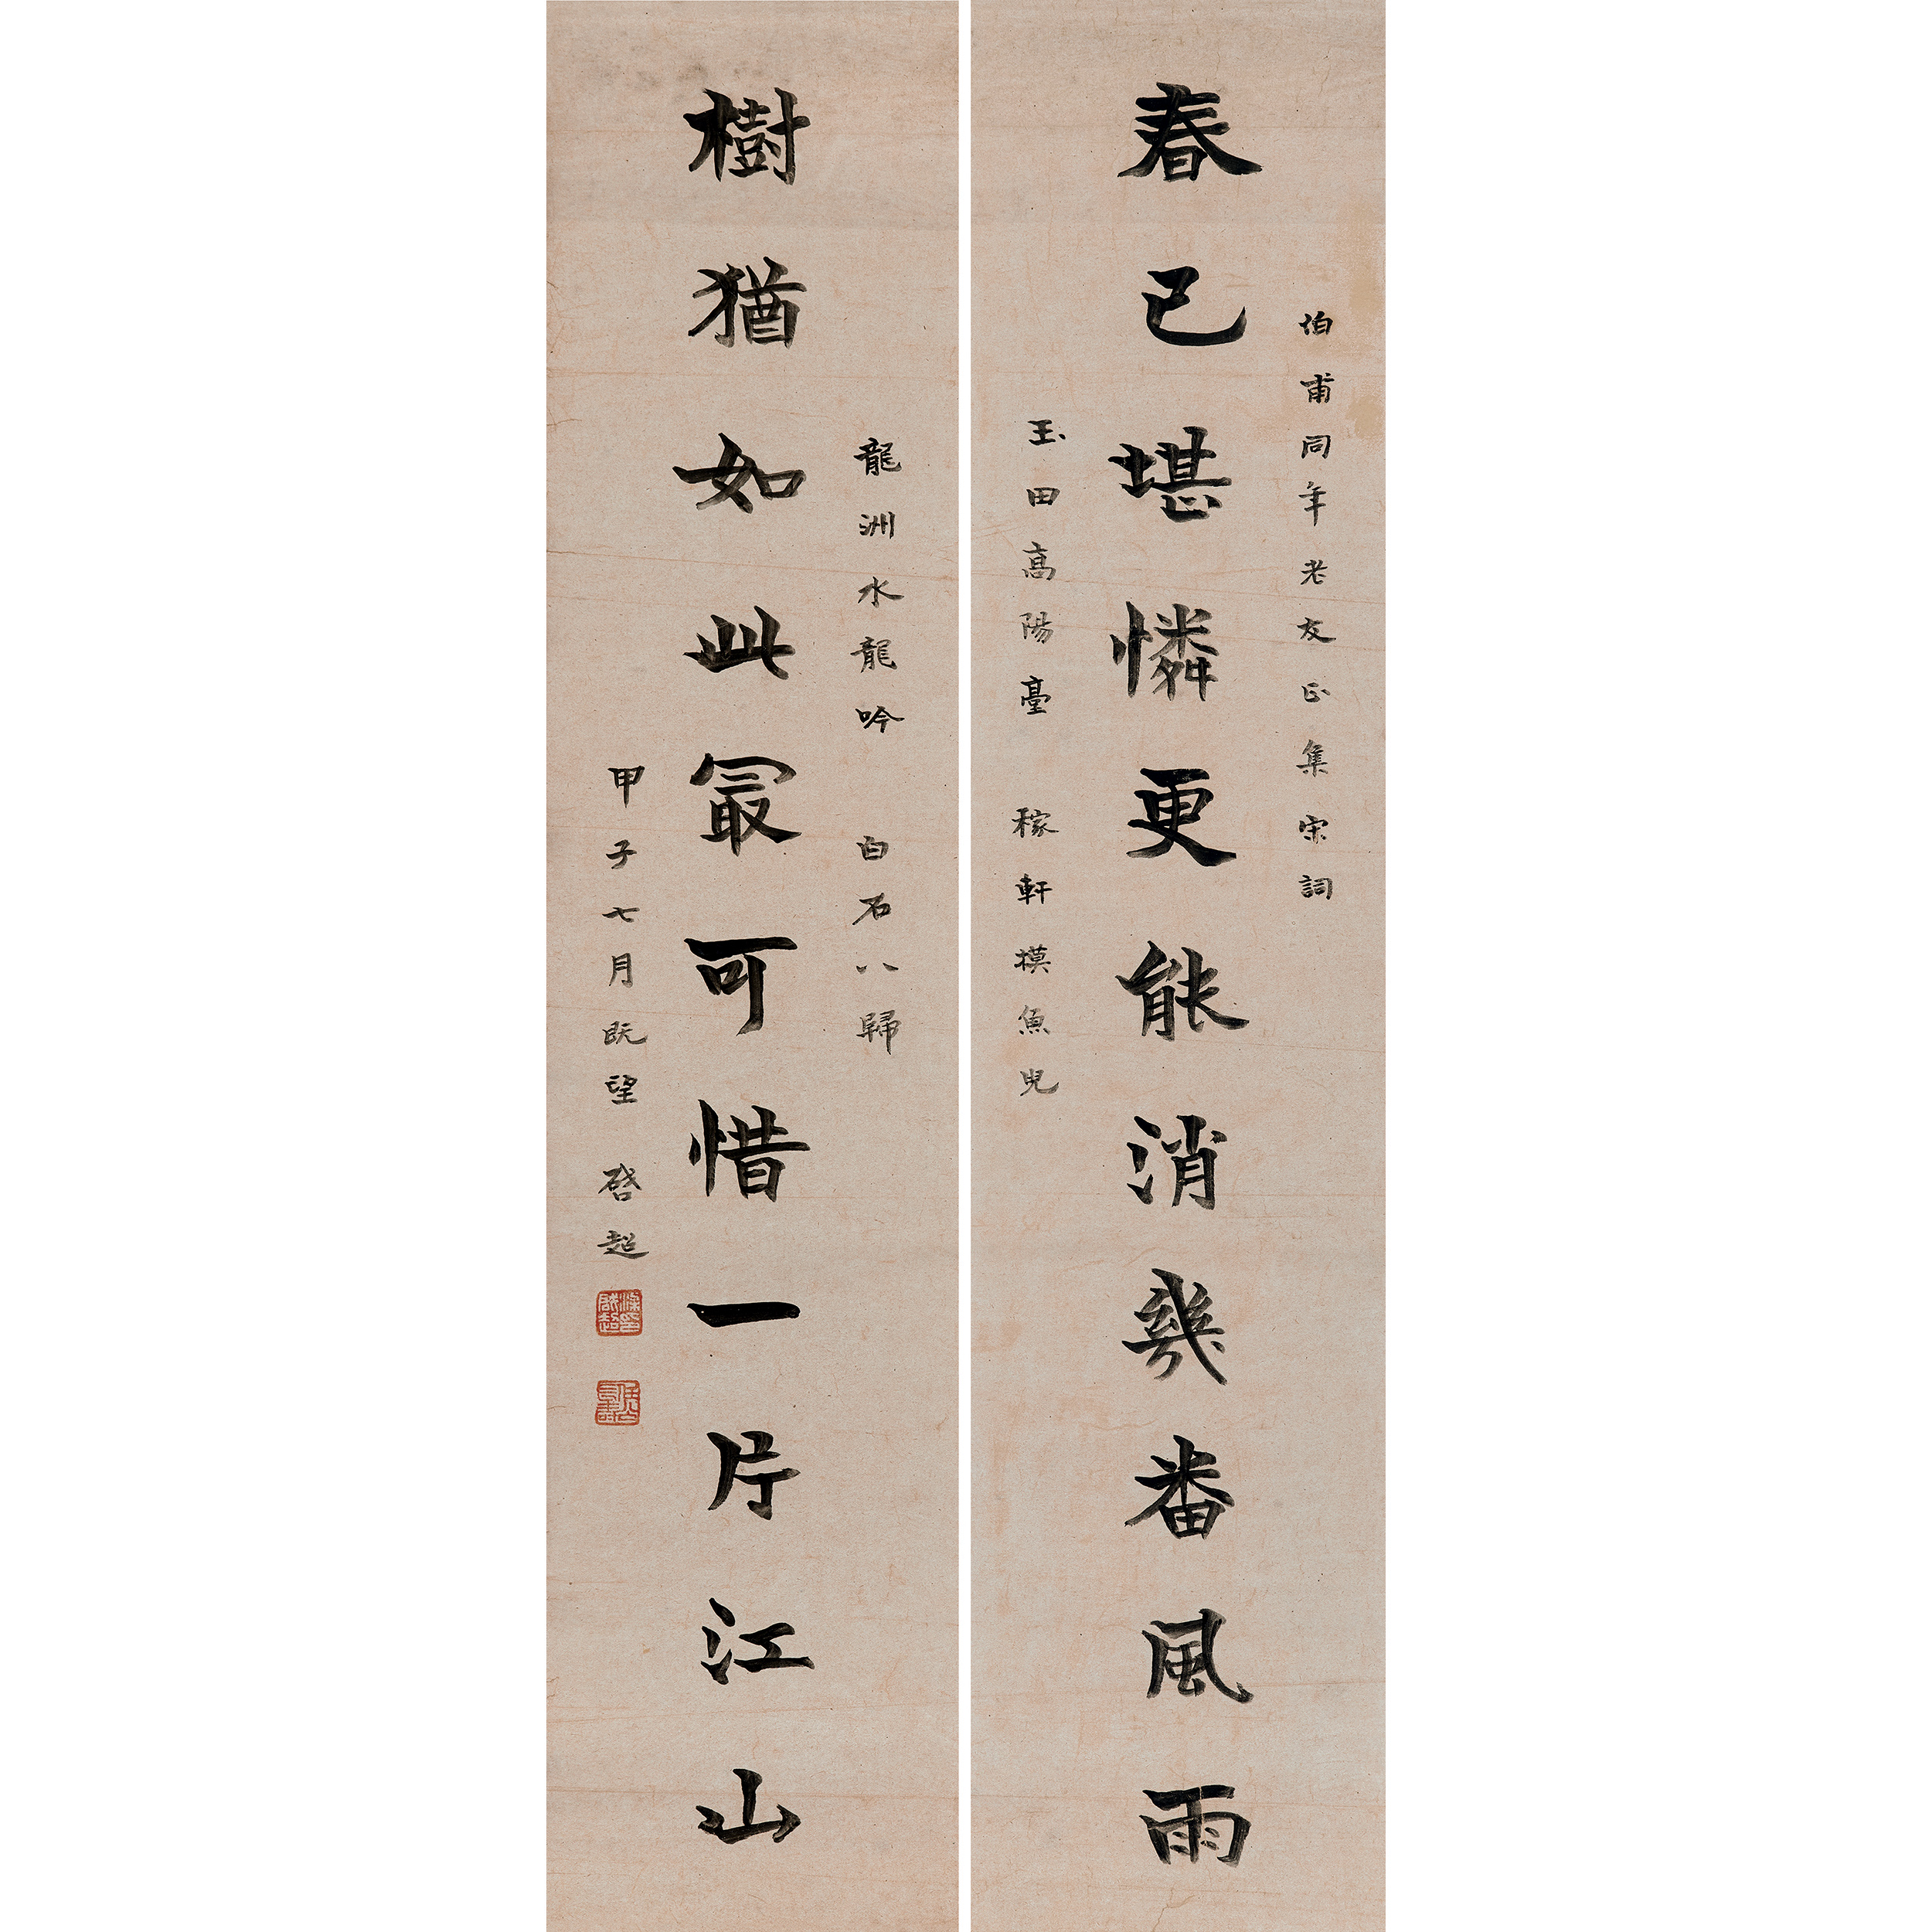 伯甫同年老友正集宋詞
春已堪憐更能消幾番風雨
玉田高陽臺 稼軒摸魚兒
龍洲水龍吟 白石八歸
樹猶如此最可惜一片江山
甲子七月既望 啓超
梁啟超印